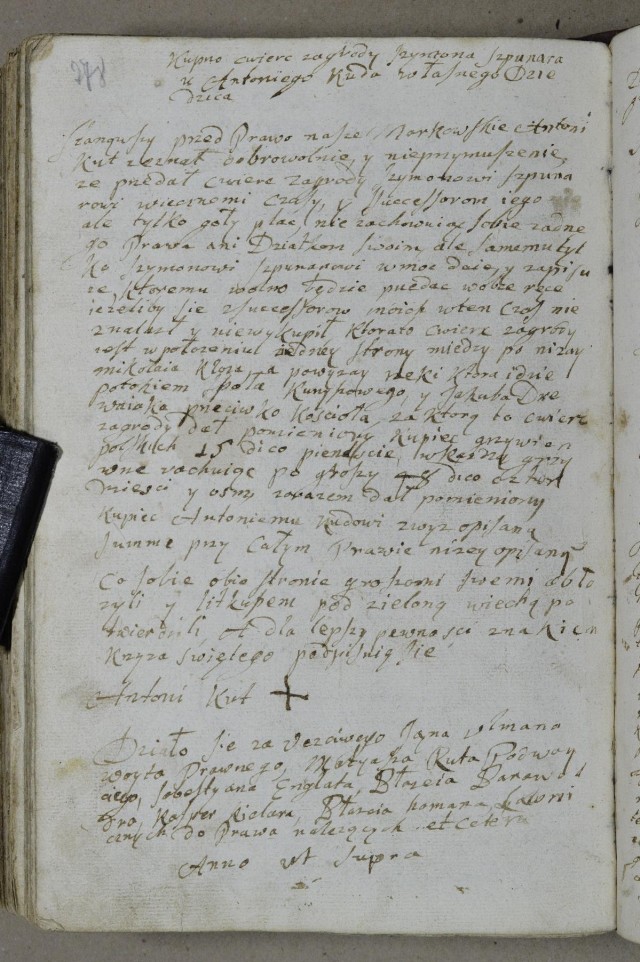 278
Kupno cwierc zagrody Szymona Szpunara
u Antoniego Kuda własnego Dzie
dzica
Stanąwszy przed Prawo nasze Markowskie Antoni
Kut zeznał dobrowolnie, y nieprzymuszenie,
ze przedał cwierc zagrody Szymonowi Szpuna
rowi wiecznemi czasy, y Successorom iego
ale tylko goły plac, nie zachowuiąc sobie zadne
go Prawa ani Dziatkom swoim, ale samemu tyl
ko Szymonowi Szpunarowi wmoc daie, y zapisu
ie, ktoremu wolno będzie puedac wobce ręce
iezeliby się zsuccessorow moich wten czas nie
znalazł y niewykupił ktorato cwierc zagrody
iest w połozeniu zedney strony miedzy po nizey
mikołaia Kloza, a powyzey rzeki ktora idzie
potokiem pola Kunyszowego, y Jakuba Drze
wniaka przeciwko Kościoła, za ktorą to cwierc
zagrody dał pomieniony Kupiec grzywien
polskich 15 dico pietnascie, wkazdą grzy
wnę rachuiąc po groszy 48 dico czter
dziesci y osm, zarazem dał pomieniony
Kupiec Antoniemu Kudowi zwyz opisaną
Summę przy Całym Prawie nizey opisaną
Co sobie obie stronie groszami swemi oboło
zyli y litkupem pod zieloną wiechą po
twierdzili, A dla lepszy pewnosci znakiem
Krzyza swiętego podpisuią się
Antoni Kut +
Działo się za Uczciwego Jana Ulmana
woyta Prawnego, Matyasza Ruta Podwoy
ciego, Sebestyana Englata, Błazeia Baraw
dra, Kasper Kielara, Błazeia homana, Ławni
cznych do Prawa nalezących et cetera
Anno ut Supra